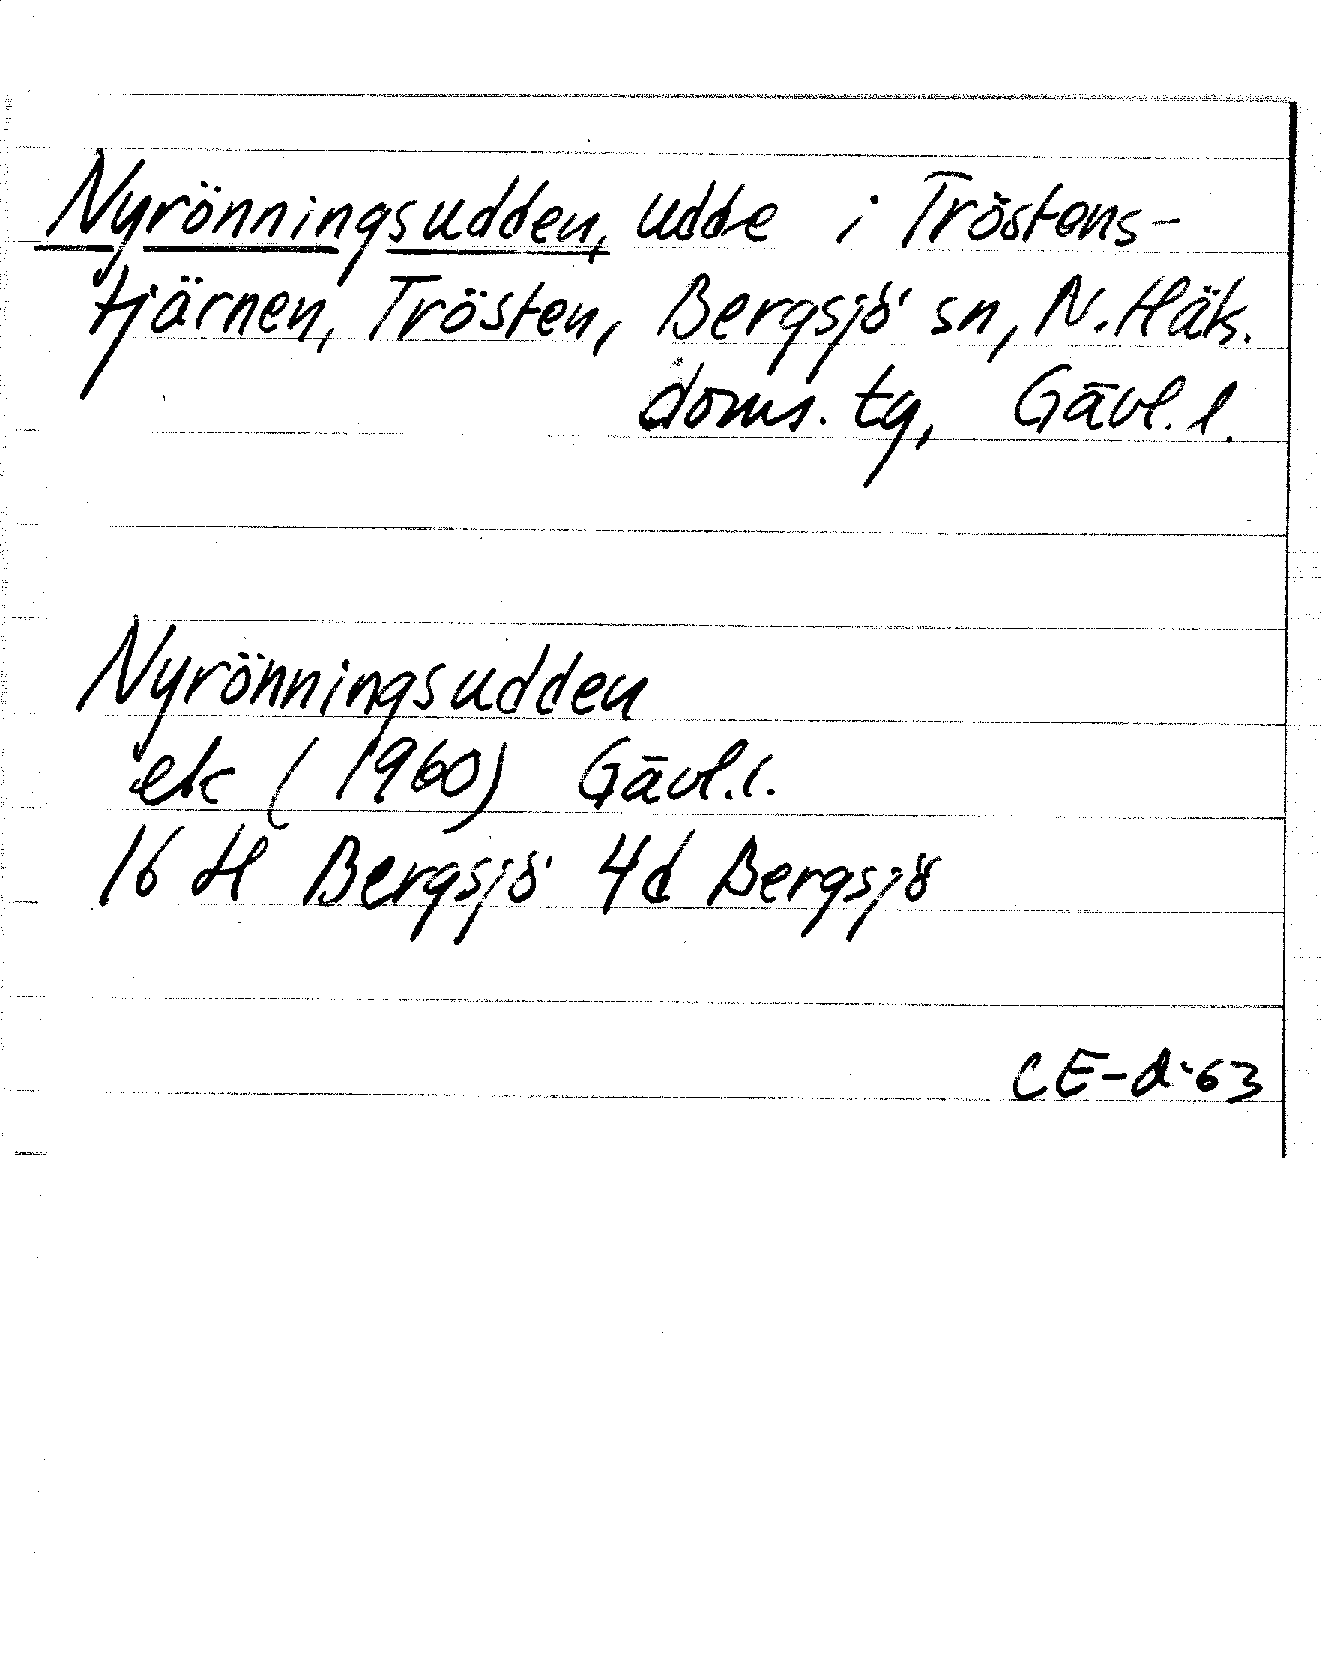 Nyrönningsudden, udde i Tröstens-
tjärnen, Trösten, Bergsjö sn, N. Häls.
doms. tg, Gävl. l.
Nyrönningsudden
ek (1960) Gävl. l.
16 H Bergsjö 4d Bergsjö
CE-d-63